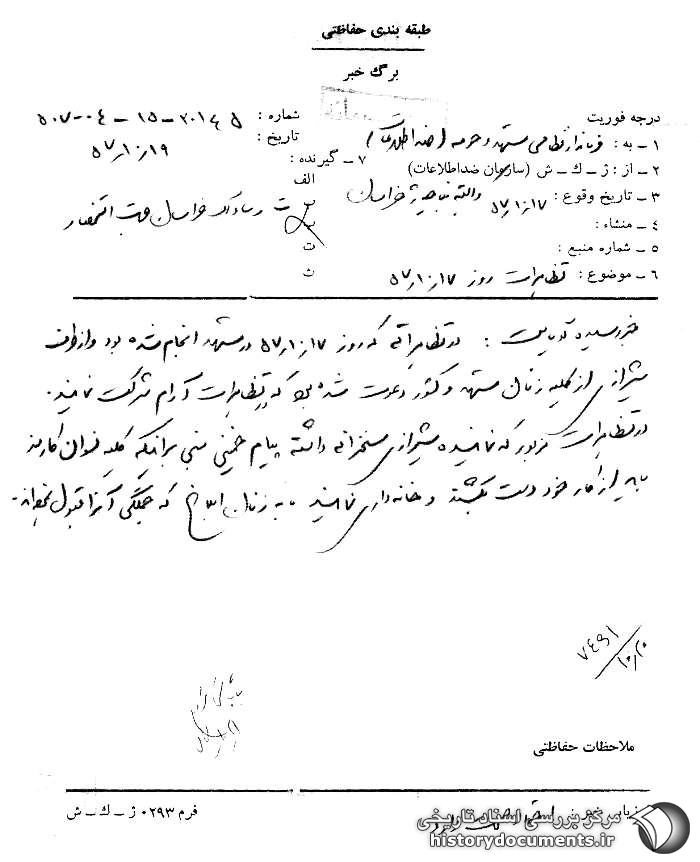 طبقه بندی حفاظتی
برگ خبر
درجه فوریت
شماره :
۱ – به : فرماندار نظامی مشهد و حومه (ضد اطلاعات)
تاریخ : ۵۷٫۱۰٫۱۹
۲ – از : ژ – ک – ش (سازمان ضداطلاعات)
۷ – گیرنده :
الف
۳ – تاریخ وقوع : ۵۷٫۱۰٫۱۷
۴ – منشاء :
ب ریاست ساواک خراسان جهت استحضار
۵ – شماره منبع :
ت
۶ – موضوع : تظاهرات روز ۵۷٫۱۰٫۱۷
ث
خبر رسیده : در تظاهراتی که روز ۵۷٫۱۰٫۱۷ در مشهد انجام شده بود و از طرف
شیرازی از کلیه زنان مشهد و کشور دعوت شده بود که در تظاهرات آرام شرکت نمایند.
در تظاهرات مزبور که نماینده شیرازی سخنرانی داشته پیام خمینی مبنی بر اینکه کلیه نسوان کارمند
باید از کار خود دست بکشند و خانه داری نمایند به زنان ابلاغ که همگی آنرا قبول نموده‌اند.
۷۴۹۱
۱۰٫۲۰
ملاحظات حفاظتی
فرم ۰۲۹۳ ژ – ک – ش
مرکز بررسی اسناد تاریخی
historydocuments.ir